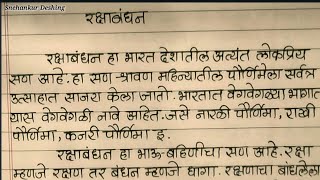 Snehankur Deshing
रक्षाबंधन
रक्षाबंधन हा भारत देशातील अत्यंत लोकप्रिय
सण आहे. हा सण श्रावण महिन्यातील पौर्णिमेला सर्वत्र
उत्साहात साजरा केला जातो. भारतात वेगवेगळ्या भागात
यास वेगवेगळी नावे आहेत. जसे नारळी पौर्णिमा, राखी
पौर्णिमा, कजरी पौर्णिमा इ.
रक्षाबंधन हा भाऊ-बहिणीचा सण आहे. रक्षा
म्हणजे रक्षण तर बंधन म्हणजे धागा. रक्षणाचा बांधलेला